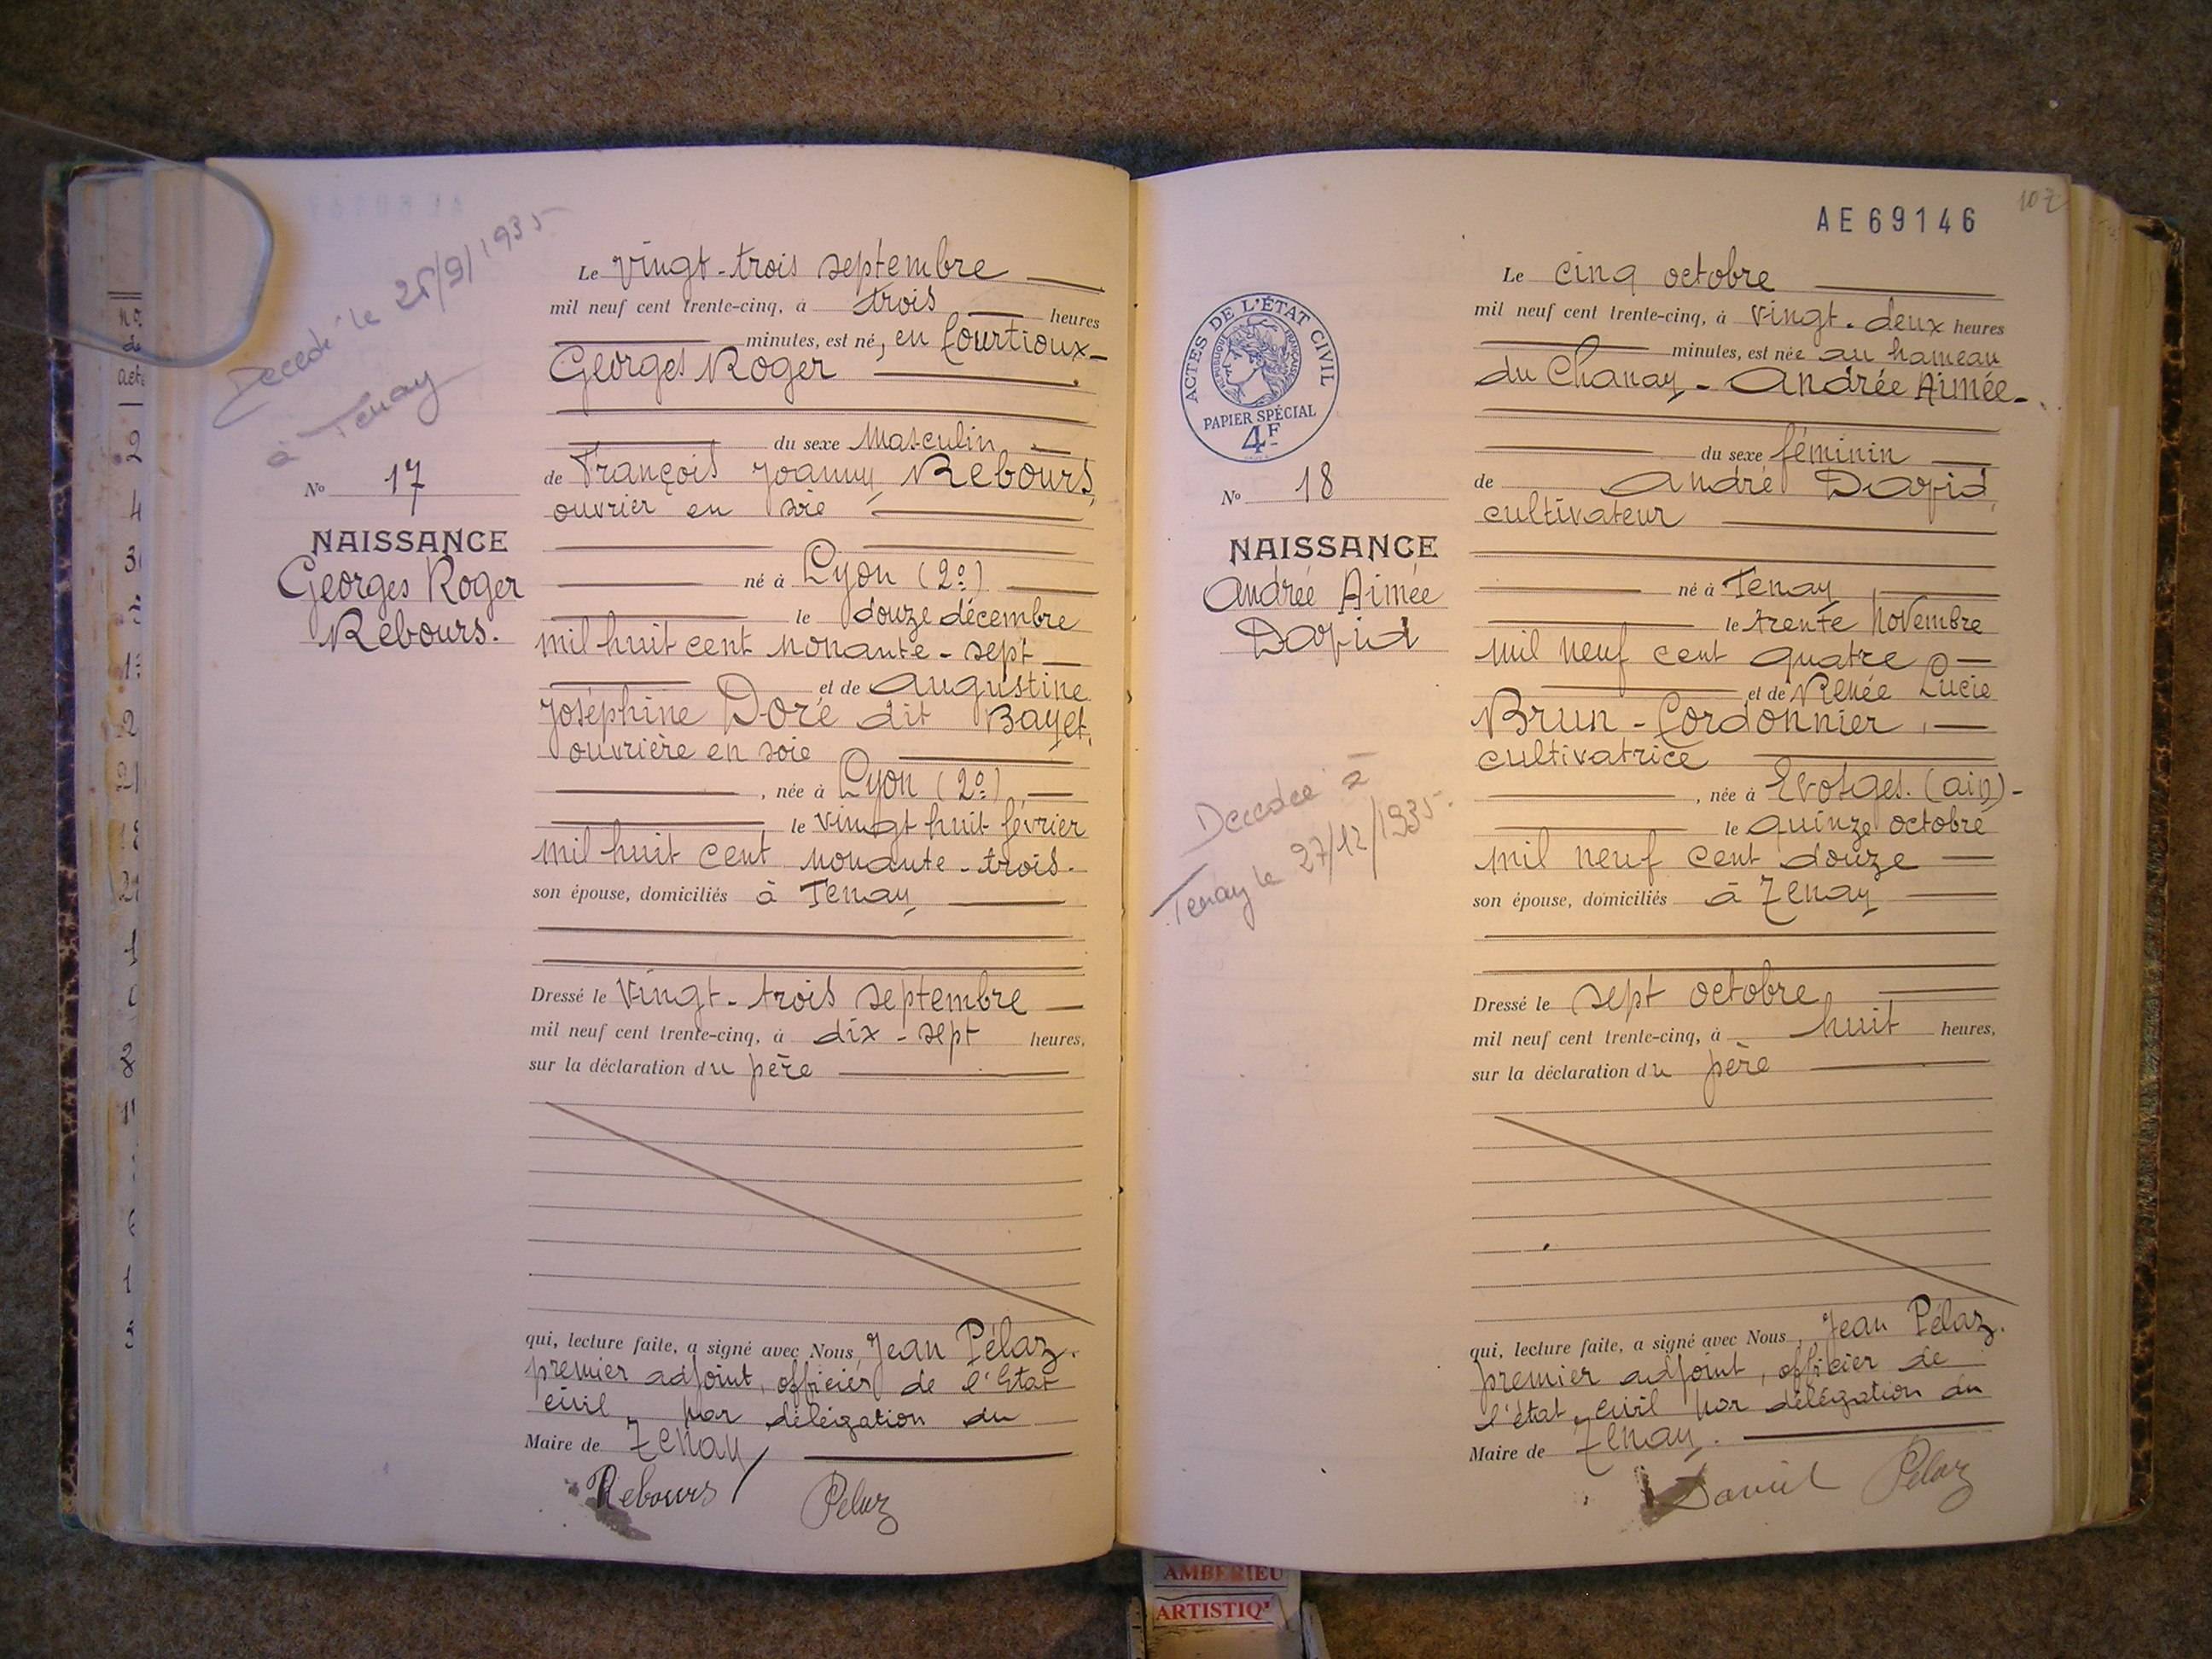 Decedé le 25/9/1935
à Tenay
N° 17
NAISSANCE
Georges Roger
Rebours.
Le vingt-trois septembre
mil neuf cent trente-cinq, à trois heures
minutes, est né, en Courtioux
Georges Roger
du sexe masculin
de François Joanny Rebours,
ouvrier en soie
né à Lyon (2e)
le douze décembre
mil huit cent nonante-sept
et de Augustine
Joséphine Doré dit Bayet,
ouvrière en soie
, née à Lyon (2e)
le vingt huit février
mil huit cent nonante-trois.
son épouse, domiciliés à Tenay
Dressé le vingt-trois septembre
mil neuf cent trente-cinq, à dix-sept heures,
sur la déclaration du père
qui, lecture faite, a signé avec Nous, Jean Pélaz.
premier adjoint, officier de l'Etat
civil par délégation du
Maire de Tenay
Rebours Pelaz
AE69146
107
ACTES DE L'ÉTAT CIVIL
RÉPUBLIQUE FRANÇAISE
PAPIER SPÉCIAL
4F
N° 18
NAISSANCE
Andrée Aimée
David
Decedée à
Tenay le 27/12/1935.
Le cinq octobre
mil neuf cent trente-cinq, à vingt-deux heures
minutes, est née au hameau
du Chanay - Andrée Aimée-
du sexe féminin
de André David,
cultivateur
né à Tenay
le trente novembre
mil neuf cent quatre
et de Renée Lucie
Brun-Cordonnier,
cultivatrice
, née à Evosges. (ain)-
le quinze octobre
mil neuf cent douze
son épouse, domiciliés à Tenay
Dressé le sept octobre
mil neuf cent trente-cinq, à huit heures,
sur la déclaration du père
qui, lecture faite, a signé avec Nous, Jean Pélaz.
premier adjoint, officier de
l'état civil par délégation du
Maire de Tenay.
David Pelaz
AMBERIEU
ARTISTIQ'